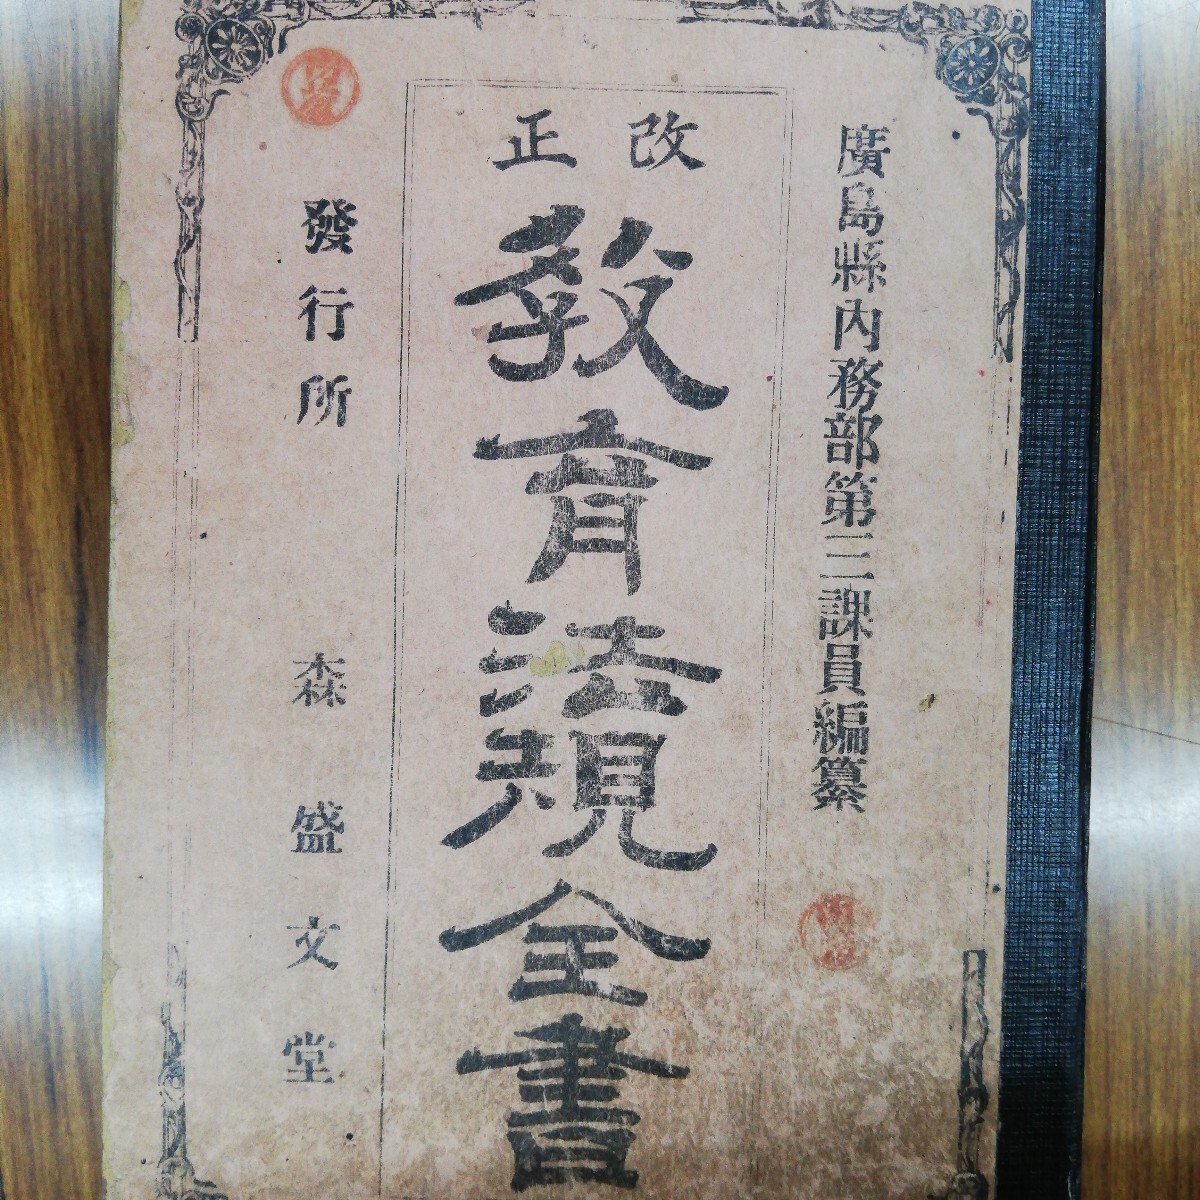 廣島縣内務部第三課員編纂
改正
教育法規全書
發行所 森盛文堂